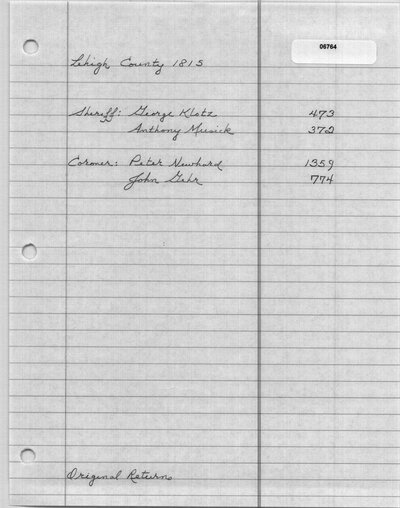 06764
Lehigh County 1815
Sheriff: George Klotz 473
Anthony Musick 372
Coroner: Peter Newhard 1359
John Gehr 774
Original Returns